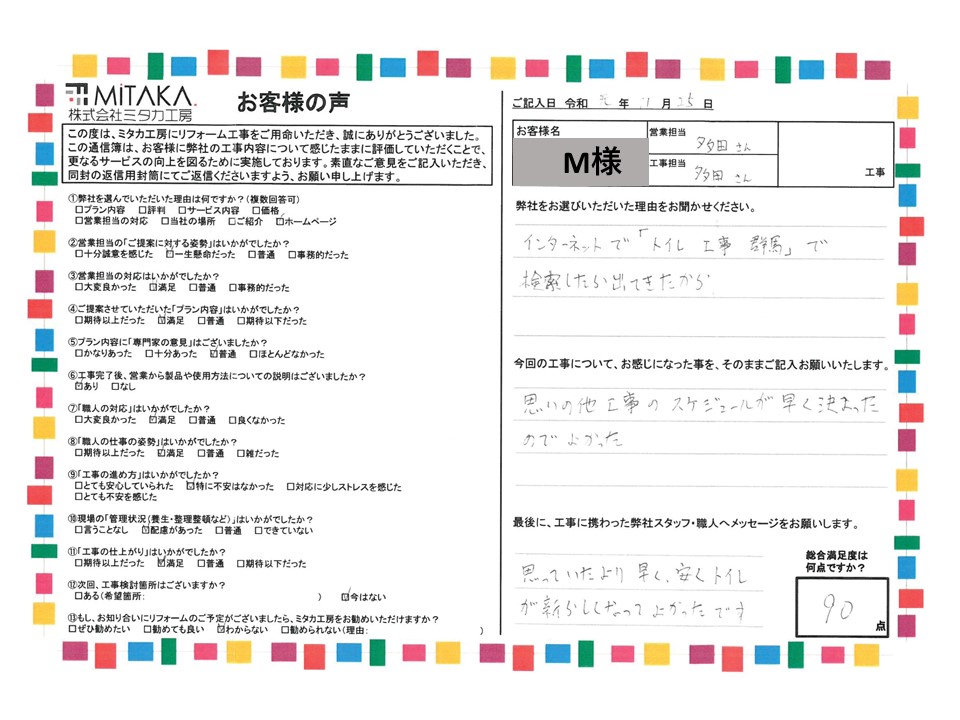 MiTAKA.
株式会社ミタカ工房
お客様の声
この度は、ミタカ工房にリフォーム工事をご用命いただき、誠にありがとうございました。
この通信簿は、お客様に弊社の工事内容について感じたままに評価していただくことで、
更なるサービスの向上を図るために実施しております。素直なご意見をご記入いただき、
同封の返信用封筒にてご返信くださいますよう、お願い申し上げます。
①弊社を選んでいただいた理由は何ですか?(複数回答可)
□プラン内容 □評判 □サービス内容 □価格
□営業担当の対応 □当社の場所 □ご紹介 ☑ホームページ
②営業担当の「ご提案に対する姿勢」はいかがでしたか?
□十分誠意を感じた ☑一生懸命だった □普通 □事務的だった
③営業担当の対応はいかがでしたか?
□大変良かった ☑満足 □普通 □事務的だった
④ご提案させていただいた「プラン内容」はいかがでしたか?
□期待以上だった ☑満足 □普通 □期待以下だった
⑤プラン内容に「専門家の意見」はございましたか?
□かなりあった □十分あった ☑普通 □ほとんどなかった
⑥工事完了後、営業から製品や使用方法についての説明はございましたか?
☑あり □なし
⑦「職人の対応」はいかがでしたか?
□大変良かった ☑満足 □普通 □良くなかった
⑧「職人の仕事の姿勢」はいかがでしたか?
□期待以上だった ☑満足 □普通 □雑だった
⑨「工事の進め方」はいかがでしたか?
□とても安心していられた ☑特に不安はなかった □対応に少しストレスを感じた
□とても不安を感じた
⑩現場の「管理状況(養生・整理整頓など)」はいかがでしたか?
□言うことなし ☑配慮があった □普通 □できていない
⑪「工事の仕上がり」はいかがでしたか?
□期待以上だった ☑満足 □普通 □期待以下だった
⑫次回、工事検討箇所はございますか?
□ある(希望箇所: ) ☑今はない
⑬もし、お知り合いにリフォームのご予定がございましたら、ミタカ工房をお勧めいただけますか?
□ぜひ勧めたい □勧めても良い ☑わからない □勧められない(理由: )
ご記入日 令和 元 年 11 月 25 日
お客様名
M様
営業担当 多田 さん
工事担当 多田 さん
工事
弊社をお選びいただいた理由をお聞かせください。
インターネットで「トイレ 工事 群馬」で
検索したら出てきたから
今回の工事について、お感じになった事を、そのままご記入お願いいたします。
思いの他工事のスケジュールが早く決まった
のでよかった
最後に、工事に携わった弊社スタッフ・職人へメッセージをお願いします。
思っていたより早く、安くトイレ
が新らしくなってよかったです
総合満足度は
何点ですか?
90
点